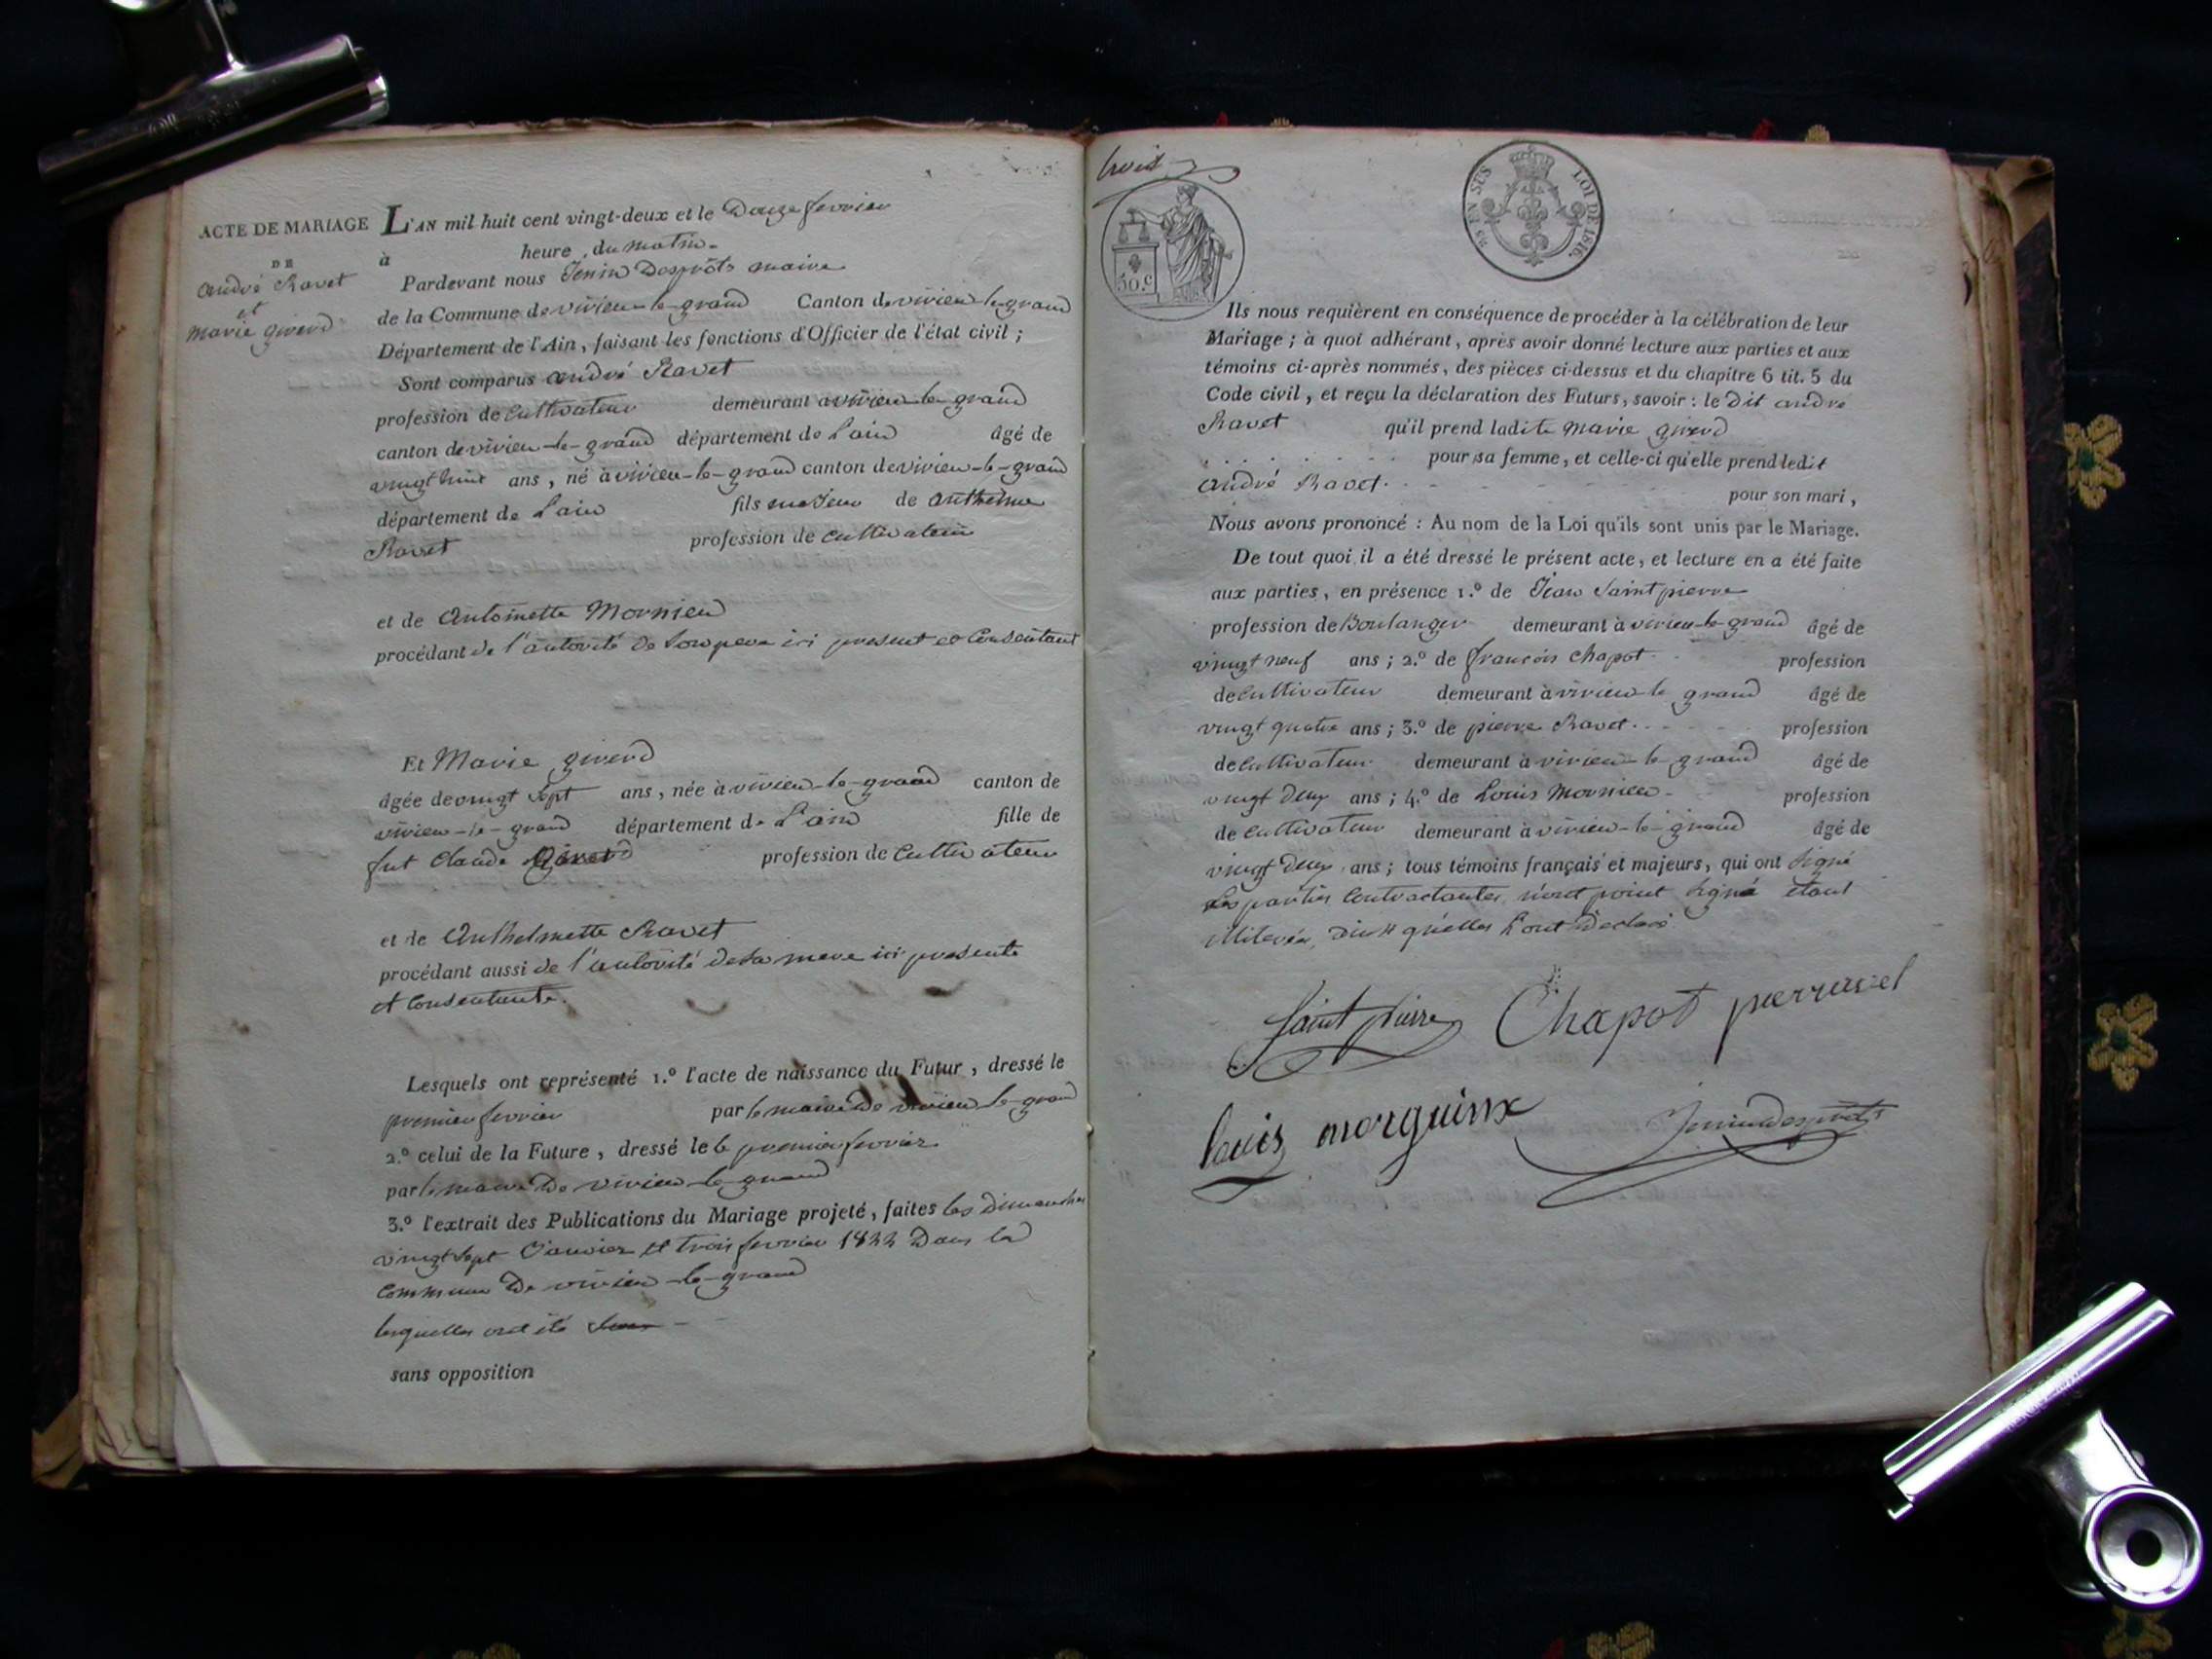 ACTE DE MARIAGE
DE
andré Ravet
et
marie giverd
L'AN mil huit cent vingt-deux et le Douze fevrier
à heure du matin
Pardevant nous Jenin Desprots maire
de la Commune de virieu-le-grand Canton de virieu-le-grand
Département de l'Ain, faisant les fonctions d'Officier de l'état civil ;
Sont comparus andré Ravet
profession de Cultivateur demeurant a virieu-le-grand
canton de virieu-le-grand département de Lain âgé de
vingt huit ans, né à virieu-le-grand canton de virieu-le-grand
département de Lain fils majeur de anthelme
Ravet profession de cultivateur
et de Antoinette Mornieu
procédant de l'autorité de son pere ici present et Consentant
Et Marie giverd
âgée de vingt sept ans, née à virieu-le-grand canton de
virieu-le-grand département de L'ain fille de
fut Claude profession de Cultivateur
et de Anthelmette Ravet
procédant aussi de l'autorité de sa mere ici presente
et Consentante.
Lesquels ont représenté 1.º l'acte de naissance du Futur, dressé le
premier fevrier par le maire De virieu le-grand
2.º celui de la Future, dressé le le premier fevrier
par le maire De virieu-le-grand
3.º l'extrait des Publications du Mariage projeté, faites les Dimanches
vingt sept Janvier et trois fevrier 1822 Dans la
Commune De virieu-le-grand
lesquelles ont été
sans opposition
trois
50.C
25 EN SUS LOI DE 1816.
Ils nous requièrent en conséquence de procéder à la célébration de leur
Mariage ; à quoi adhérant, après avoir donné lecture aux parties et aux
témoins ci-après nommés, des pièces ci-dessus et du chapitre 6 tit. 5 du
Code civil, et reçu la déclaration des Futurs, savoir : le Dit andré
Ravet qu'il prend ladite marie giverd
pour sa femme, et celle-ci qu'elle prend ledit
andré Ravet. pour son mari,
Nous avons prononcé : Au nom de la Loi qu'ils sont unis par le Mariage.
De tout quoi il a été dressé le présent acte, et lecture en a été faite
aux parties, en présence 1.º de Jean Saint pierre
profession de Boulanger demeurant à virieu-le-grand âgé de
vingt neuf ans ; 2.º de françois chapot profession
de cultivateur demeurant à virieu-le grand âgé de
vingt quatre ans ; 3.º de pierre Ravet profession
de cultivateur demeurant à virieu-le-grand âgé de
vingt Deux ans ; 4.º de Louis Mornieu profession
de cultivateur demeurant à virieu-le-grand âgé de
vingt Deux ans ; tous témoins français et majeurs, qui ont signé
Les parties Contractantes n'ont point signé étant
qu'elles L'ont Declaré
Saint pierre Chapot pierravel
louis morguinx Jenin Desprots